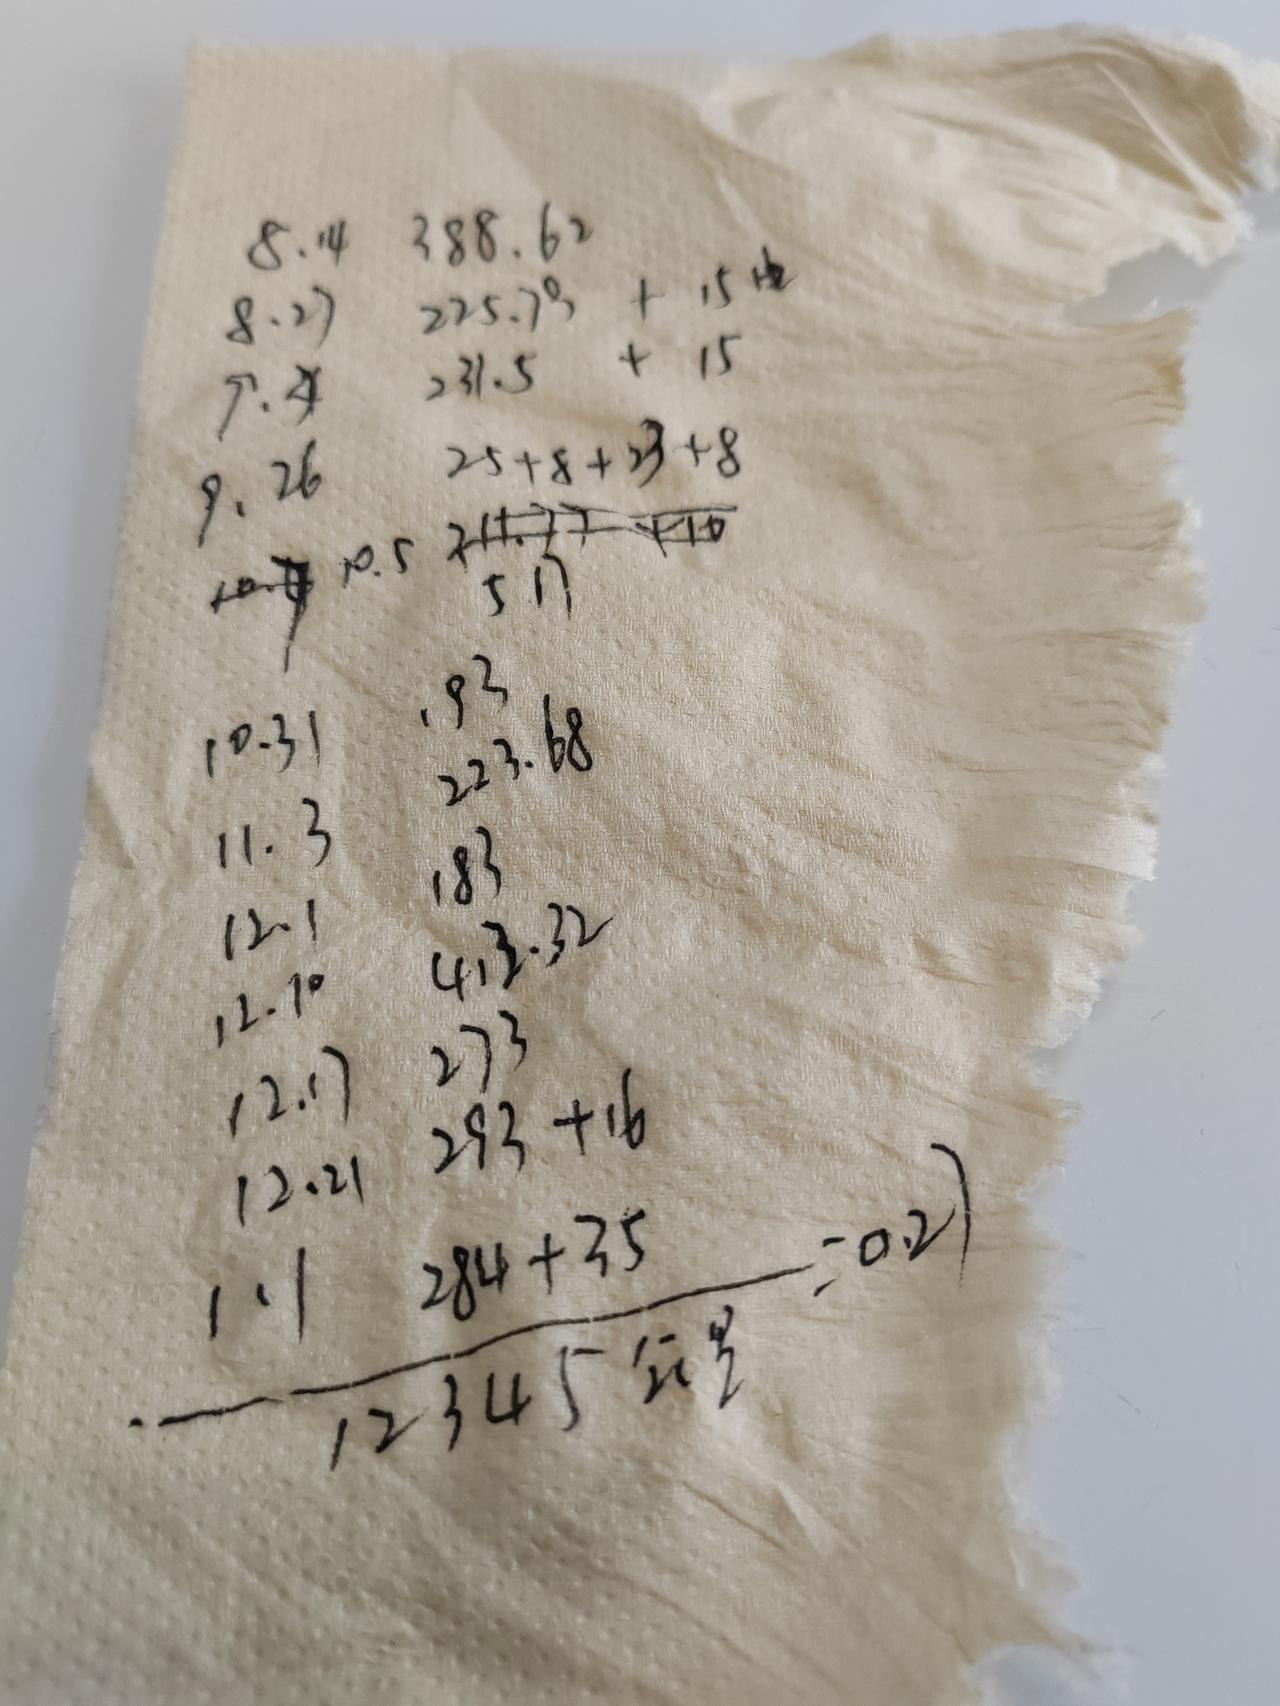 8.14 388.62
8.27 225.79 + 15
9.4 231.5 + 15
9.26 25+8+23+8
10.5
517
10.31 193
11.3 223.68
12.1 183
12.10 413.32
12.17 273
12.21 293 +16
1.1 284+35
=0.27
12345公里